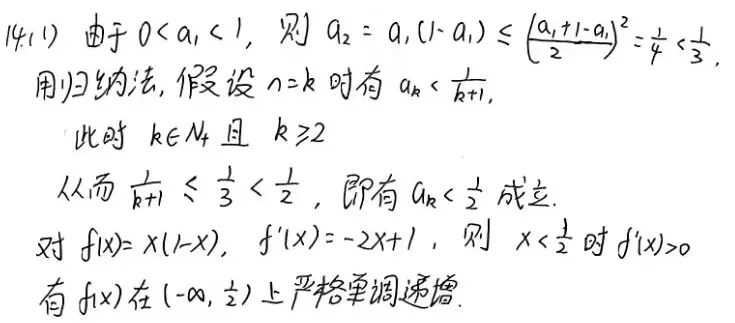 14.(1) 由于 0<a₁<1, 则 a₂=a₁(1-a₁)≤((a₁+1-a₁)/2)²=1/4<1/3,
用归纳法, 假设 n=k 时有 aₖ<1/(k+1),
此时 k∈N₊ 且 k≥2
从而 1/(k+1)≤1/3<1/2, 即有 aₖ<1/2 成立.
对 f(x)=x(1-x), f'(x)=-2x+1, 则 x<1/2 时 f'(x)>0
有 f(x) 在 (-∞, 1/2) 上严格单调递增.